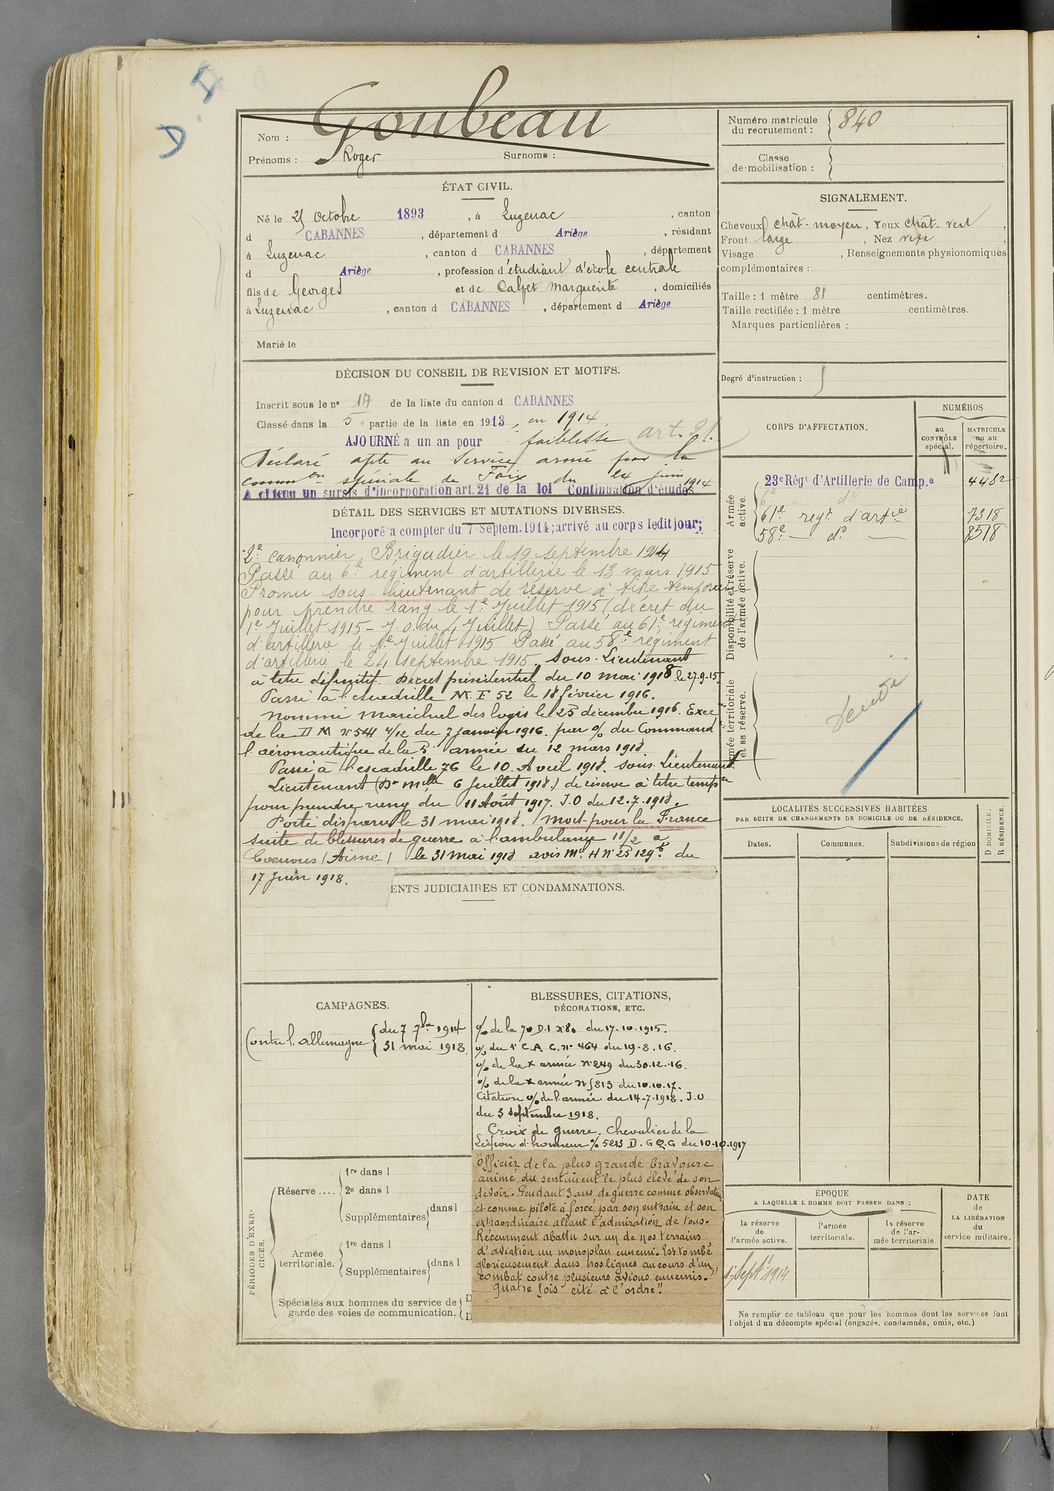 D. D
Nom : Goubeau
Prénoms : Roger Surnoms :
ÉTAT CIVIL.
Né le 25 Octobre 1893, à Luzenac, canton
d CABANNES, département d Ariège, résidant
à Luzenac, canton d CABANNES, département
d Ariège, profession d'étudiant d'école centrale
fils de Georges et de Calvet Marguerite, domiciliés
à Luzenac, canton d CABANNES, département d Ariège
Marié le
DÉCISION DU CONSEIL DE REVISION ET MOTIFS.
Inscrit sous le nº 17 de la liste du canton d CABANNES
Classé dans la 5e partie de la liste en 1913, en 1914.
AJOURNÉ a un an pour faiblesse art. 21.
Déclaré apte au Service armé par la
common spéciale de Foix du 24 juin 1914
A obtenu un sursis d'incorporation art. 21 de la loi Continuation d'études
DÉTAIL DES SERVICES ET MUTATIONS DIVERSES.
Incorporé a compter du 7 Septem. 1914; arrivé au corps ledit jour;
2e canonnier, Brigadier le 19 septembre 1914
Passé au 6e régiment d'artillerie le 13 mars 1915
Promu sous lieutenant de réserve à titre temporaire
pour prendre rang le 1er Juillet 1915 (décret du
1er Juillet 1915 - J.O. du 4 Juillet) Passé au 61e régiment
d'artillerie le 1er Juillet 1915 Passé au 58e régiment
d'artillerie le 24 septembre 1915. Sous-Lieutenant
à titre définitif. Décret présidentiel du 10 mai 1918 le 27.9.15
Passé à l'escadrille M.F 52 le 18 février 1916.
Nommé Maréchal des logis le 25 décembre 1916. Exec
de la D M Nº 544 4/12 du 7 janvier 1916. par % du Command
l'aéronautique de la 5e armée du 12 mars 1918.
Passé à l'escadrille 76 le 10 Avril 1918. Sous-Lieutenant
Lieutenant (Don Melle 6 Juillet 1918.) de réserve à titre tempre
pour prendre rang du 11 Août 1917. J.O du 12.7.1918.
Porté disparu le 31 mai 1918. Mort pour la France
suite de blessures de guerre à l'ambulance 11/2 à
Coeuvres (Aisne) le 31 mai 1918 avis Mel H Nº 25129 du
17 Juin 1918.
ENTS JUDICIAIRES ET CONDAMNATIONS.
CAMPAGNES.
Contre l'Allemagne du 7 7bre 1914
31 mai 1918
BLESSURES, CITATIONS,
DÉCORATIONS, ETC.
% de la 70 D.I Nº 80 du 17.10.1915.
% du 1er C.A.C. nº 464 du 19.8.16.
% de la X armée nº 249 du 30.12.16.
% de la X armée nº 813 du 10.10.17.
Citation % de l'armée du 14.7.1918. J.O
du 3 septembre 1918.
Croix de guerre. Chevalier de la
Légion d'honneur % 5213 D. G Q G du 10.10.1917
"Officier de la plus grande bravoure
animé du sentiment le plus élevé de son
devoir. Pendant 3 ans de guerre comme observateur
et comme pilote a forcé par son entrain et son
extraordinaire allant l'admiration de tous.
Récemment abattu sur un de nos terrains
d'aviation un monoplan ennemi. Est tombé
glorieusement dans nos lignes au cours d'un
combat contre plusieurs avions ennemis.
Quatre fois cité à l'ordre."
PÉRIODES D'EXERCICES.
Réserve....
1re dans l
2e dans l
Supplémentaires dans l
Armée territoriale.
1re dans l
Supplémentaires dans l
Spéciales aux hommes du service de
garde des voies de communication.
Numéro matricule du recrutement : 840
Classe de mobilisation :
SIGNALEMENT.
Cheveux chât-moyen, Yeux chât-vert,
Front large, Nez
Visage, Renseignements physionomiques
complémentaires :
Taille : 1 mètre 81 centimètres.
Taille rectifiée : 1 mètre centimètres.
Marques particulières :
Degré d'instruction :
CORPS D'AFFECTATION.
NUMÉROS
AU CONTRÔLE spécial.
MATRICULE ou au répertoire.
Armée active.
23e Régt d'Artillerie de Camp.e 4482
6e do
61e regt d'artie 7318
58e do 8518
Disponibilité et réserve de l'armée active.
Armée territoriale et sa réserve.
LOCALITÉS SUCCESSIVES HABITÉES
PAR SUITE DE CHANGEMENTS DE DOMICILE OU DE RÉSIDENCE.
Dates. Communes. Subdivisions de région
D DOMICILE. R RÉSIDENCE.
ÉPOQUE
A LAQUELLE L'HOMME DOIT PASSER DANS :
la réserve de l'armée active.
l'armée territoriale.
la réserve de l'armée territoriale.
DATE de LA LIBÉRATION du service militaire.
Septbre 1914
Ne remplir ce tableau que pour les hommes dont les services font
l'objet d'un décompte spécial (engagés, condamnés, omis, etc.)